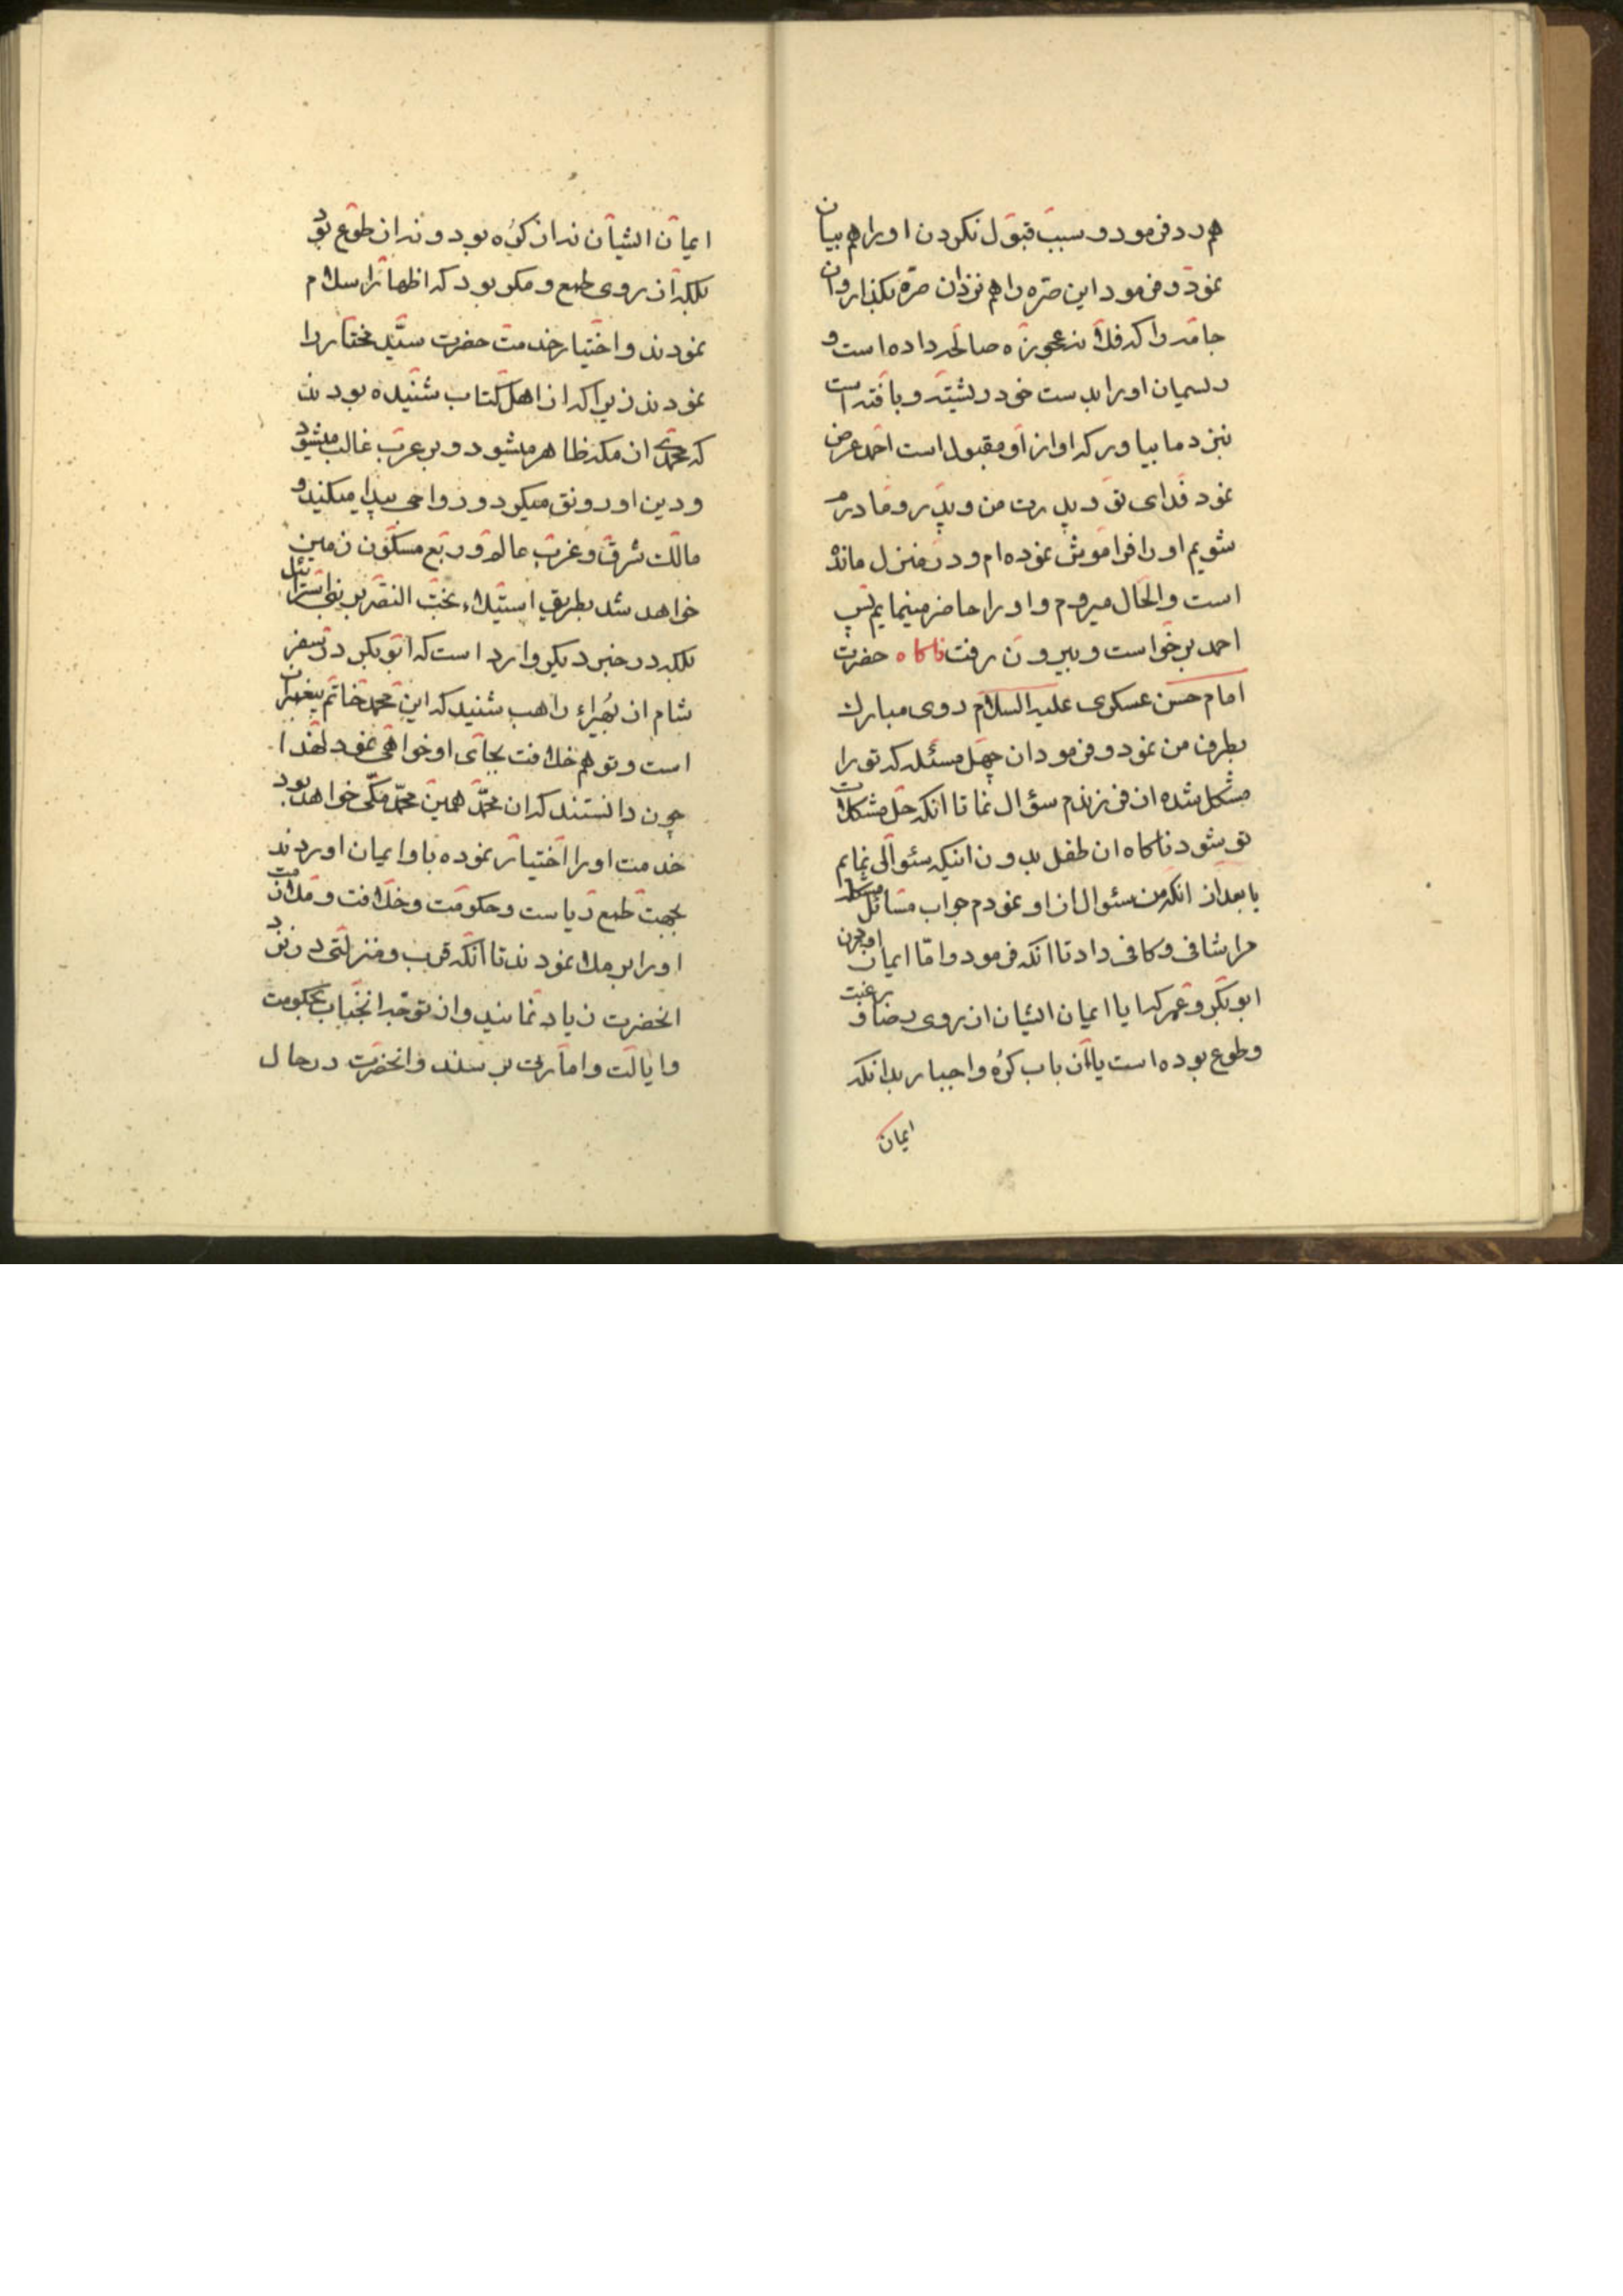 هم رد فرمود و سبب قبول نکردن او را هم بیان
نمود و فرمود این صره را هم نزد ان صره بکذار و ان
جامه را که فلانه عجوزه صالحه داده است و
ریسمان او را بدست خود رشیته و بافته است
نزد ما بیاور که او از او مقبول است احمد عرض
نمود فدای تو و پدرت من و پدر و مادرم
شویم او را فراموش نموده ام و در منزل مانده
است والحال میروم و او را حاضر مینمایم پس
احمد برخواست و بیرون رفت ناکاه حضرت
امام حسن عسکری علیه السلام روی مبارک
بطرف من نمود و فرمود ان چهل مسئله که تو را
مشکل شده از فرزندم سؤال نما تا انکه حل مشکلات
تو بشود ناکاه ان طفل بدون اینکه سئوالی نمایم
یا بعد از انکه من سئوال از او نمودم جواب مسائل مشکله
مرا شافی و کافی داد تا انکه فرمود و اما ایمان
ابوبکر و عمر که ایا ایمان ایشان از روی رضا و برغبت
و طوع بوده است یا از باب کره و اجبار بدانکه
ایمان
ایمان ایشان نه از کره بود و نه از طوع بود
بلکه از روی طمع و مکر بود که اظهار اسلام
نمودند و اختیار خدمت حضرت سید مختار را
نمودند زیرا که از اهل کتاب شنیده بودند
که محمدی از مکه ظاهر میشود و بر عرب غالب میشود
و دین او رونق میکیرد و رواجی پیدا میکند و
مالک شرق و غرب عالم و ربع مسکون زمین
خواهد شد بطریق استیلاء بخت النصر بر بنی اسرائیل
بلکه در خبر دیکر وارد است که ابوبکر در سفر
شام از بحیراء راهب شنید که این محمد خاتم پیغمبران
است و تو هم خلافت بجای او خواهی نمود لهذا
چون دانستند که ان محمد همین محمد مکی خواهد بود
خدمت او را اختیار نموده باو ایمان اوردند
بجهت طمع ریاست و حکومت و خلافت و ملازمت
او را بر ملا نمودند تا انکه قرب و منزلتی در نزد
انحضرت زیاد نمایند و از توجه انجناب بحکومت
و ایالت و امارت برسند و انحضرت در حال